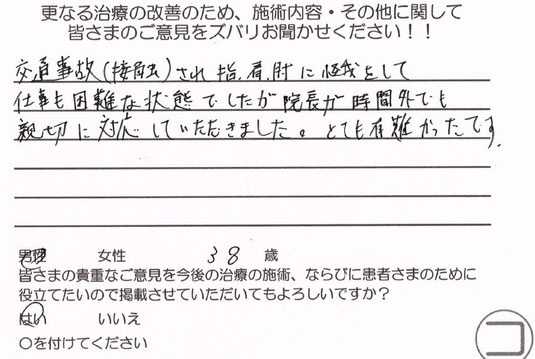 更なる治療の改善のため、施術内容・その他に関して
皆さまのご意見をズバリお聞かせください！！
交通事故(接触)され指、肩、肘に怪我をして
仕事も困難な状態でしたが院長が時間外でも
親切に対応していただきました。とても有難かったです。
男性 女性 38 歳
皆さまの貴重なご意見を今後の治療の施術、ならびに患者さまのために
役立てたいので掲載させていただいてもよろしいですか？
はい いいえ
○を付けてください
コ